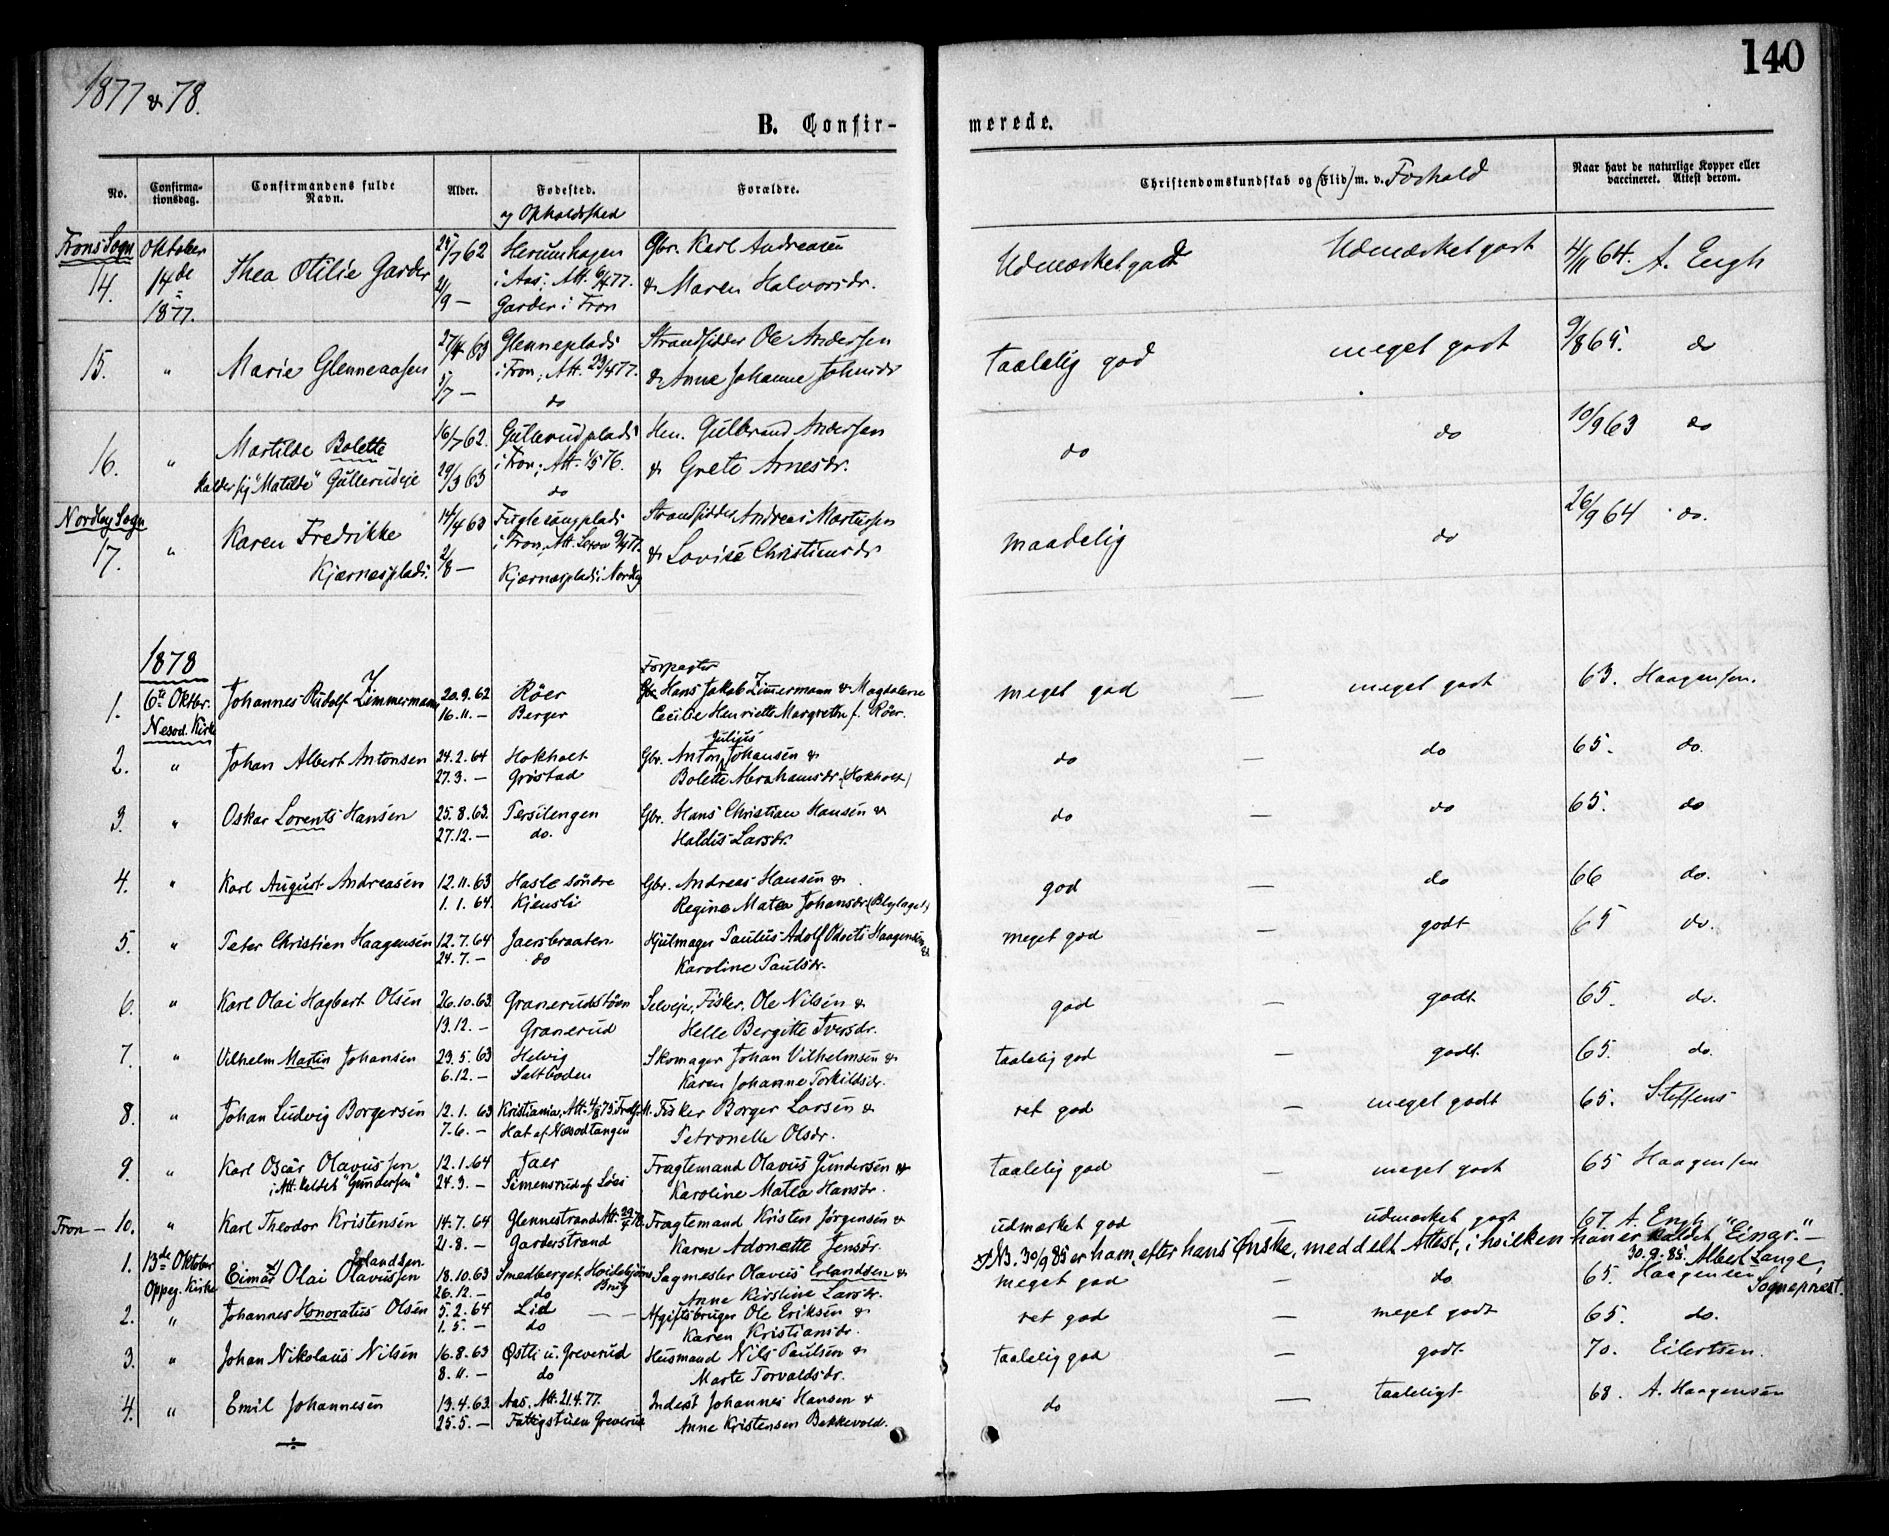 140
1877 & 78.
B. Confir-
merede.
No.
Confirma-
tionsdag.
Confirmandens fulde
Navn.
Alder.
Fødested.
og Opholdssted
Forældre.
Christendomskundskab og (Flid) m. v. Forhold
Naar havt de naturlige Kopper eller
vaccineret. Attest derom.
Frons Sogn Oktober 25/7 62 Herumhagen Gbr. Karl Andreasen
14. 14de Thea Otilie Garder i Aas; Att. 6/4 77. & Maren Halvorsdr. Udmærket godt Udmærket godt 4/11 64. A. Engh
1877. 21/9 — Garder i Fron
27/4 63 Glenneplads Strandsidder Ole Andersen
15. " Marie Glenneaasen i Fron; Att. 23/4 77. & Anne Johanne Johnsdr taalelig god meget godt 9/8 65. do
1/7 — do
16/7 62. Gullerudplads Hm. Gulbrand Andersen
16. " Martilde Bolette i Fron; Att. 1/5 76. & Grete Arnesdr. do do 10/9 63 do
kalder sig "Matilde" Gullerudeje 29/3 63 do
Nordby Sogn 14/4 63 Fuglesangplads Strandsidder Andreas Martinsen
17. " Karen Fredrikke i Fron, Att. 9/4 77. & Lovise Christiansdr maadelig do 26/9 64 do.
Kjærnesplads. 2/8 — Kjærnesplads i Nordby
1878
Forpagter
1. 6te Oktbr. Johannes Rudolf Zimmermann 20.9.62 Röer Gbr. Hans Jakob Zimmermann & Magdalene meget god — meget godt 63. Haagensen.
Nesod. Kirke 16.11.— Berger Cecilie Henriette Margrethe f. Röer.
Julius
2. " Johan Albert Antonsen 24.2.64 Hokholt Gbr. Anton Johansen & do — do 65. do.
27.3.— Gröstad Bolette Abrahamsdr. (Hokholt)
3. " Oskar Lorents Hansen 25.8.63. Tersilengen Gbr. Hans Christian Hansen & do — do 65. do
27.12.— do. Haldis Larsdr.
4. " Karl August Andreasen 12.11.63 Hasle söndre Gbr. Andreas Hansen & god — do 66 do.
1.1.64. Kjensli Regine Matea Johansdr. (Blylaget)
5. " Peter Christian Haagensen 12.7.64 Jaersbraaten Hjulmager Paulus Adolf Haagensen & meget god — godt 65 do.
24.7.— do Karoline Paulsdr.
6. " Karl Olai Hagbart Olsen 26.10.63 Granerudstöen Selvejer, Fisker, Ole Nilsen & god — godt 65. do.
13.12.— Granerud Helle Bergitte Iversdr.
7. " Vilhelm Martin Johansen 29.5.63 Helvig Skomager Johan Vilhelmsen & taalelig god — godt. 65. do.
6.12.— Saltboden Karen Johanne Torkildsdr.
8. " Johan Ludvig Borgersen 12.1.63 Kristiania, Att. 4/8 73 Fisker Borger Larsen & ret god — meget godt 65. Steffens
7.6.— Hat af Næsodtangen Petronelle Olsdr.
9. " Karl Oscar Olavussen 12.1.64 Jaer Fragtemand Olavus Gundersen & taalelig god — meget godt 65 Haagensen
i Att. kaldet "Gundersen" 24.3.— Simensrud af Löes Karoline Matea Hansdr.
Fron — 10. " Karl Theodor Kristensen 14.7.64 Glennestrand Att. Fragtemand Kristen Jörgensen & udmærket god — udmærket godt 67. A. Engh
21.8.— Garderstrand Karen Adonette Jensdr.
x) NB. 30/9 85 er ham, efter hans Ønske, meddelt Attest, i hvilken han er kaldet "Einar". —
30.9.85. Albert Lange,
Sogneprest.
Erlandsen
1. 13de Oktober Eimar x) Olai Olavussen 18.10.63 Smedberget, Hvidebjørns Brug Sagmester Olavus Erlandsen & meget god — do. 65. Haagensen
Oppeg. Kirke 26.12.— do Anne Kirstine Larsdr.
2. " Johannes Honoratus Olsen 5.2.64 Lid — — Afgiftsbruger Ole Eriksen & ret god — meget godt 65. do.
1.5.— do Karen Kristiansdr.
3. " Johan Nikolaus Nilsen 16.8.63 Østli u. Greverud Husmand Nils Paulsen & taalelig god — godt. 70. Eilertsen.
8.11.— do Marte Torvaldsdr.
4. " Emil Johannesen 19.4.63. Aas. Att. 21.4.77. Inderst Johannes Hansen & do — taaleligt. 68. A. Haagensen
25.5.— Fattigstuen Greverud Anne Kristensen Bakkevold.